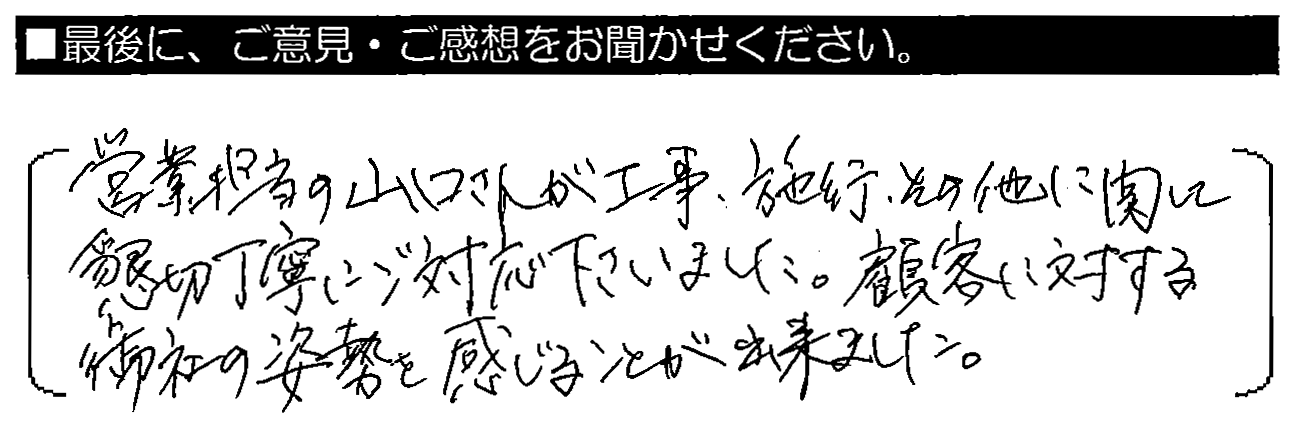 ■最後に、ご意見・ご感想をお聞かせください。
営業担当の山口さんが工事、施行、その他に関して
懇切丁寧にご対応下さいました。顧客に対する
御社の姿勢を感じることが出来ました。